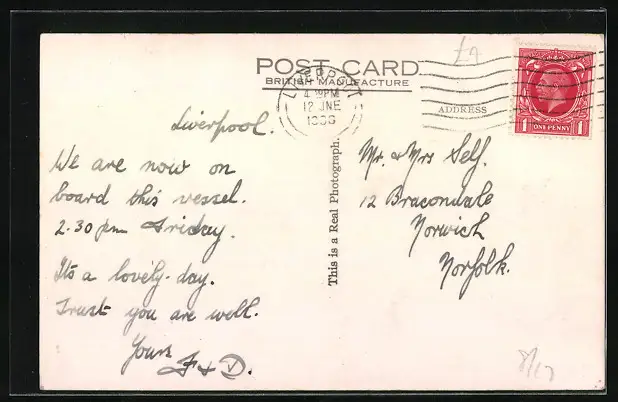 £4
POST CARD
BRITISH MANUFACTURE
LIVERPOOL
12 JNE
1936
ADDRESS
ONE PENNY
1 1
Liverpool.
We are now on
board this vessel.
2.30 pm Friday.
Its a lovely day.
Trust you are well.
Yours
F & D.
This is a Real Photograph.
Mr. & Mrs Self.
12 Bracondale
Norwich
Norfolk.